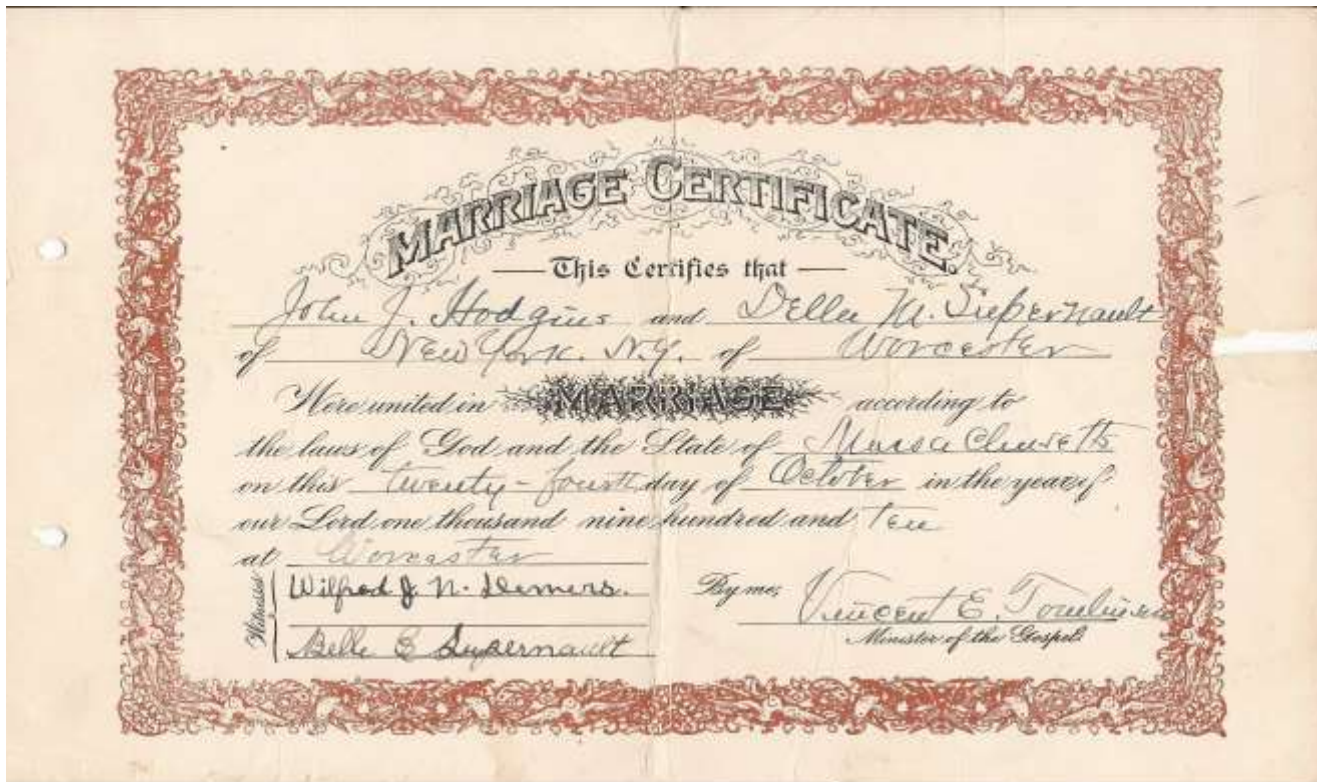 MARRIAGE CERTIFICATE.
This Certifies that
John J. Hodgins and Della M. Supernault
of New York. N.Y. of Worcester
Were united in MARRIAGE according to
the laws of God and the State of Massachusetts
on this twenty-fourth day of October in the year of
our Lord one thousand nine hundred and ten
at Worcester
Witnesses
Wilfred J. N. Demers.
Belle E Supernault
By me, Vincent E. Tomlinson
Minister of the Gospel